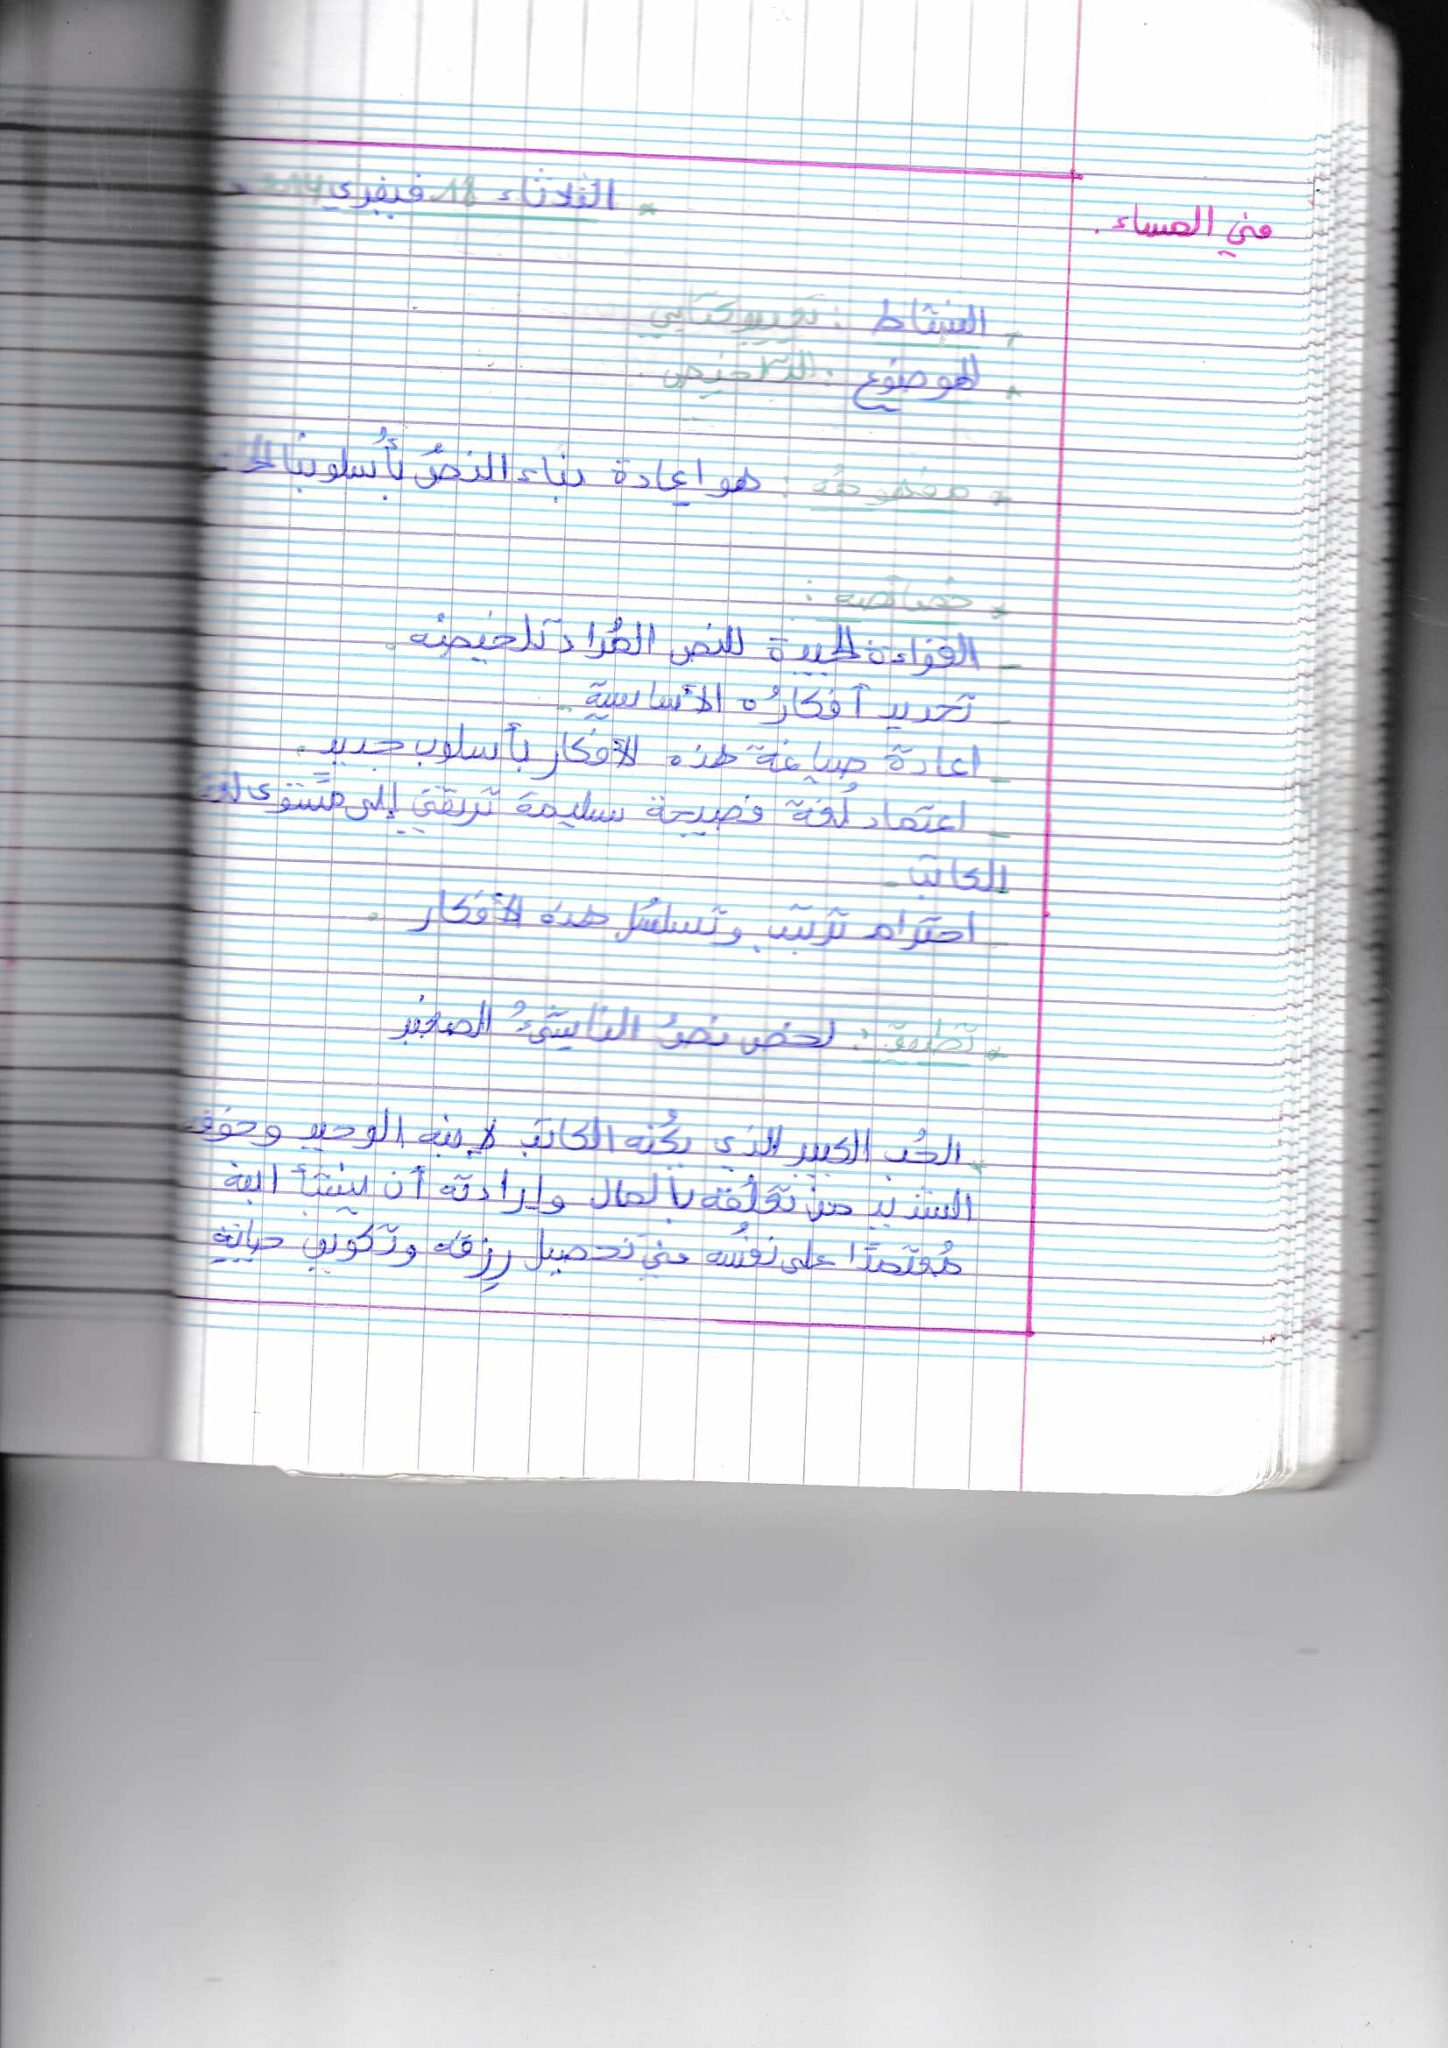 في المساء .
* الثلاثاء 18 فيفري
* النشاط : تعبير كتابي
* الموضوع : التلخيص .
* مفهومه : هو إعادة بناء النصُ بأُسلوبنا
* خصائصه :
_ القراءة الجيدة للنص المُراد تلخيصه .
_ تحديد أفكارُه الأساسية .
_ اعادة صياغة هذه الأفكار بأسلوب جديد .
_ اعتماد لُغة فصيحة سليمة ترتقي إلى مُستوى لغة
الكاتب .
_ احترام ترتيب وتسلسُل هذه الأفكار .
* تطبيق : لخص نصُ الناشئُ الصغير
* الحُب الكبير الذي يكُنه الكاتب لإبنه الوحيد وخوفه
الشديد من تعلُقه بالمال وإرادته أن ينشأ ابنه
مُعتمدًا على نفسُه في تحصيل رزقه وتكوين حياته